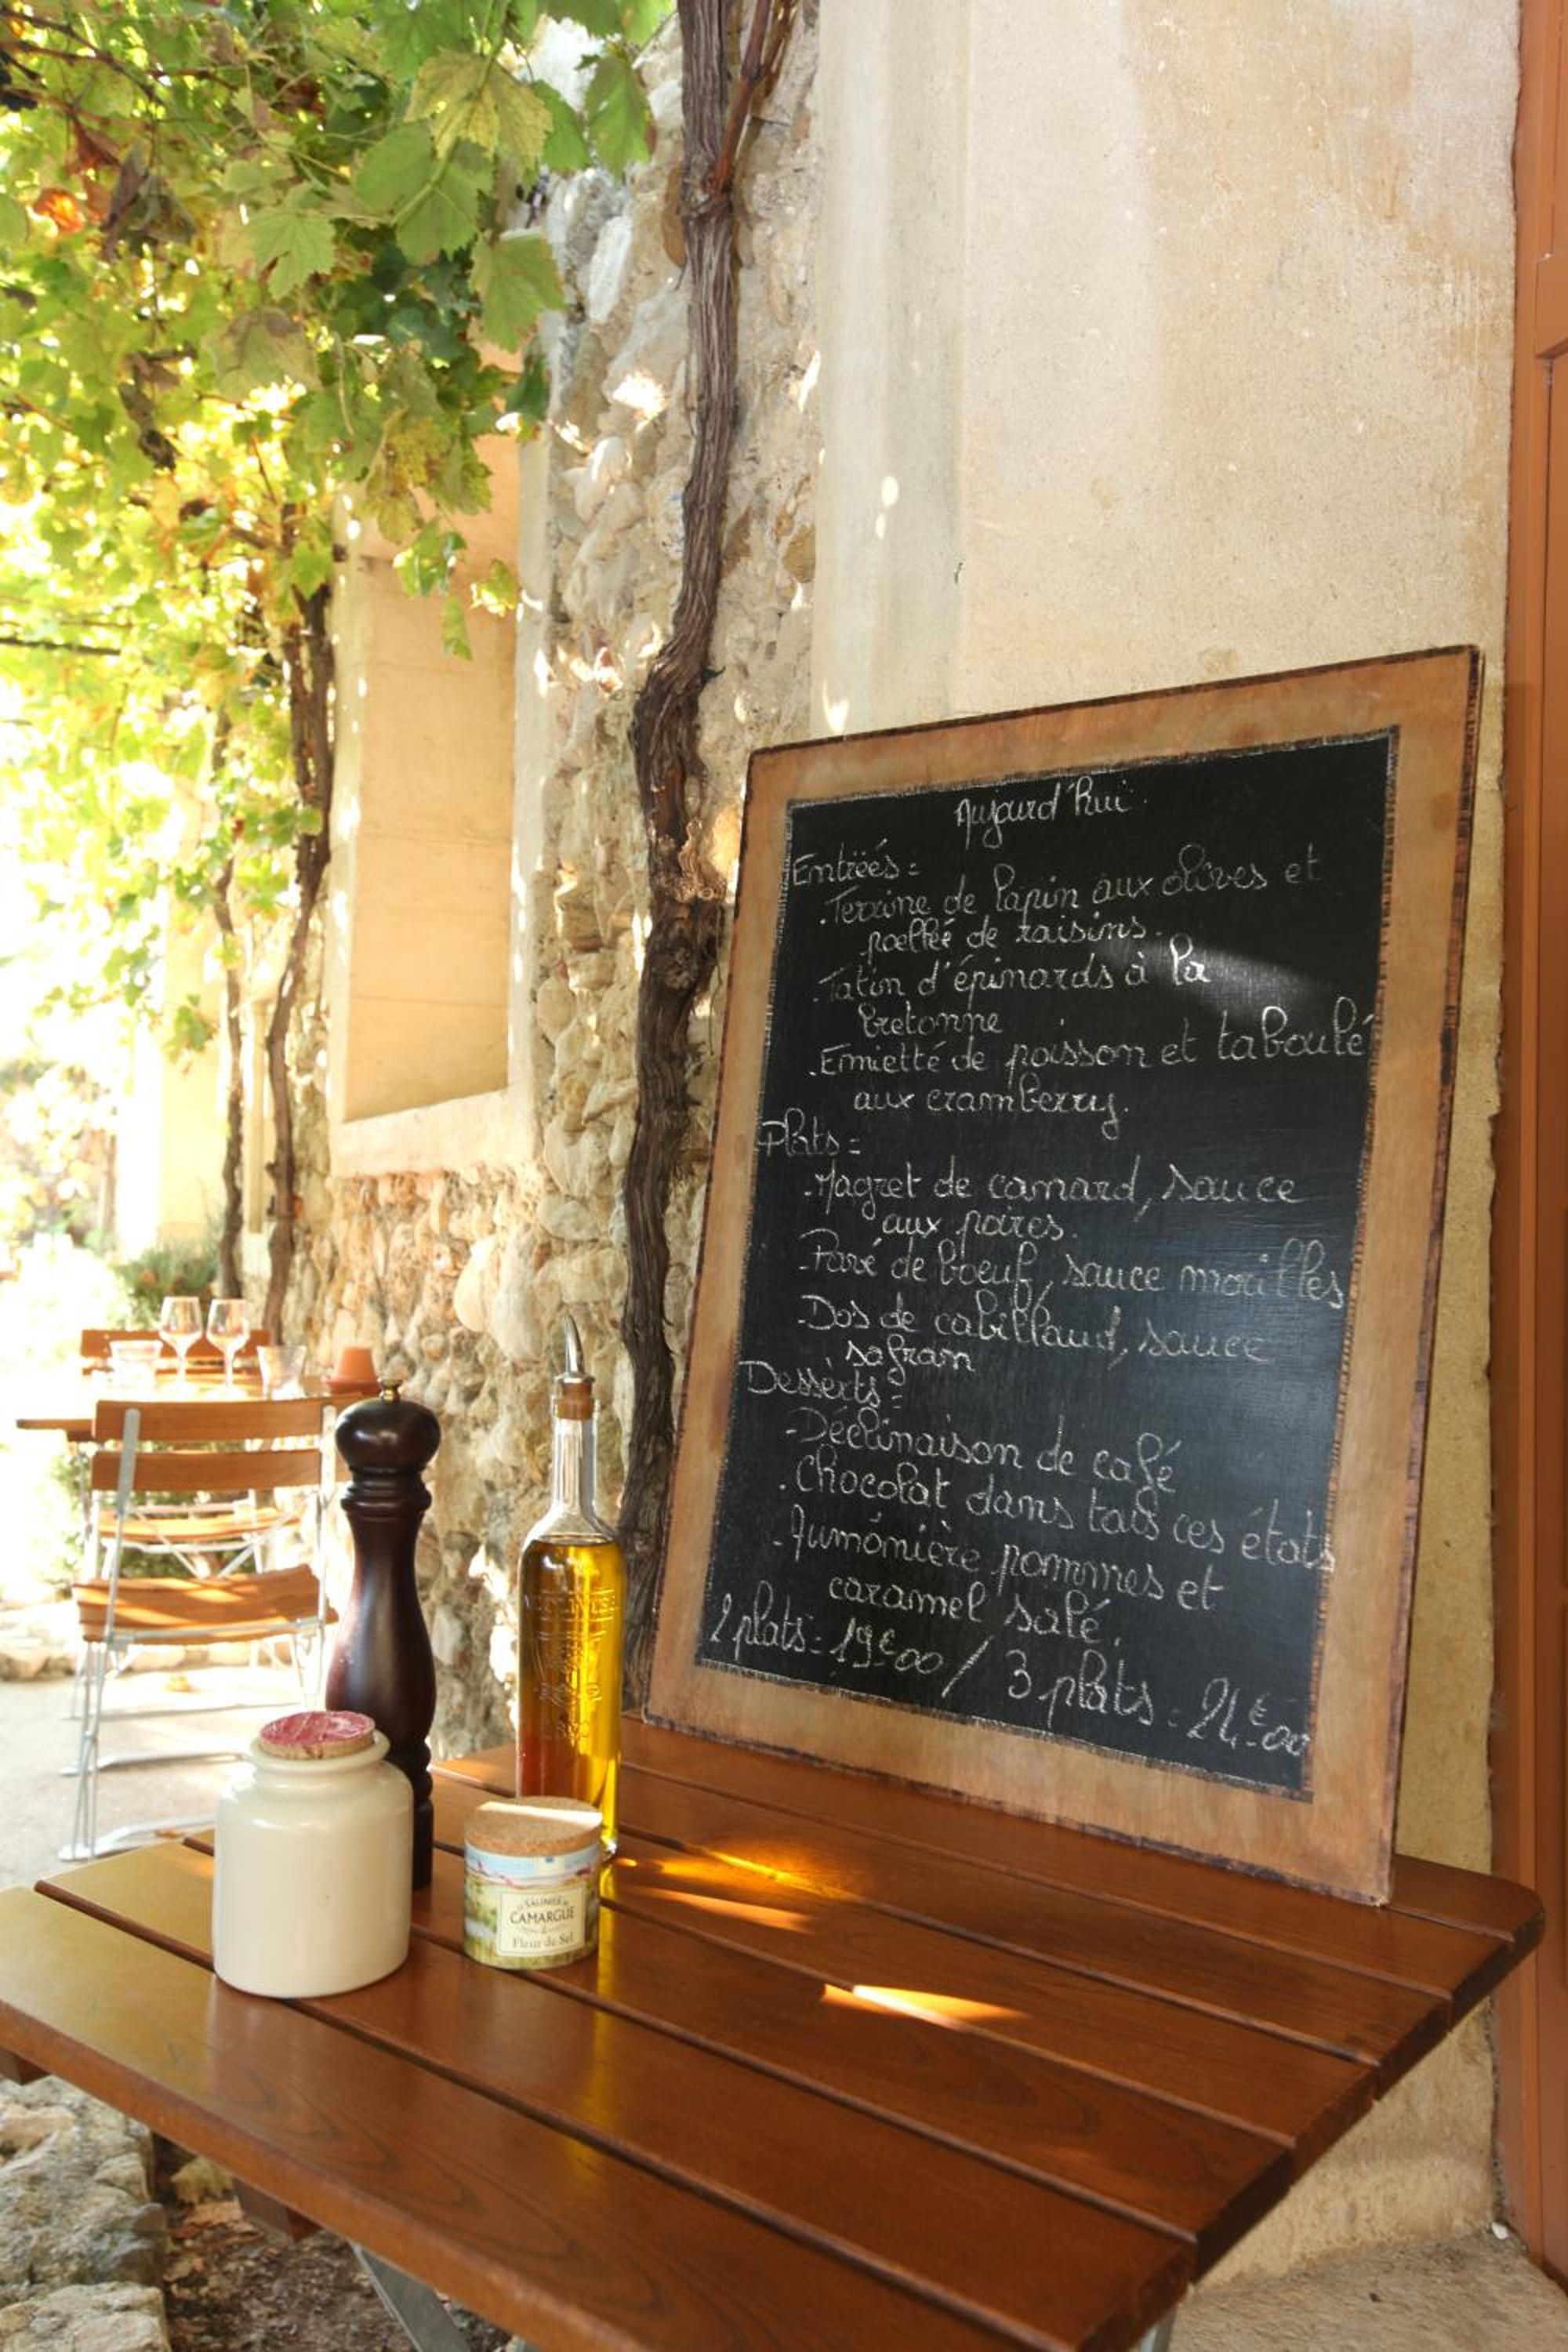 Aujourd'hui
Entrées:
.Terrine de lapin aux olives et
poellée de raisins.
.Tatin d'épinards à la
bretonne
.Emietté de poisson et taboulé
aux cramberry.
Plats:
.Magret de canard, sauce
aux poires.
.Pavé de boeuf, sauce morilles
.Dos de cabillaud, sauce
safran
Desserts:
-Déclinaison de café
.Chocolat dans tous ces états
-Aumônière pommes et
caramel salé.
2 plats: 19€00 / 3 plats: 24€00
CAMARGUE
Fleur de Sel